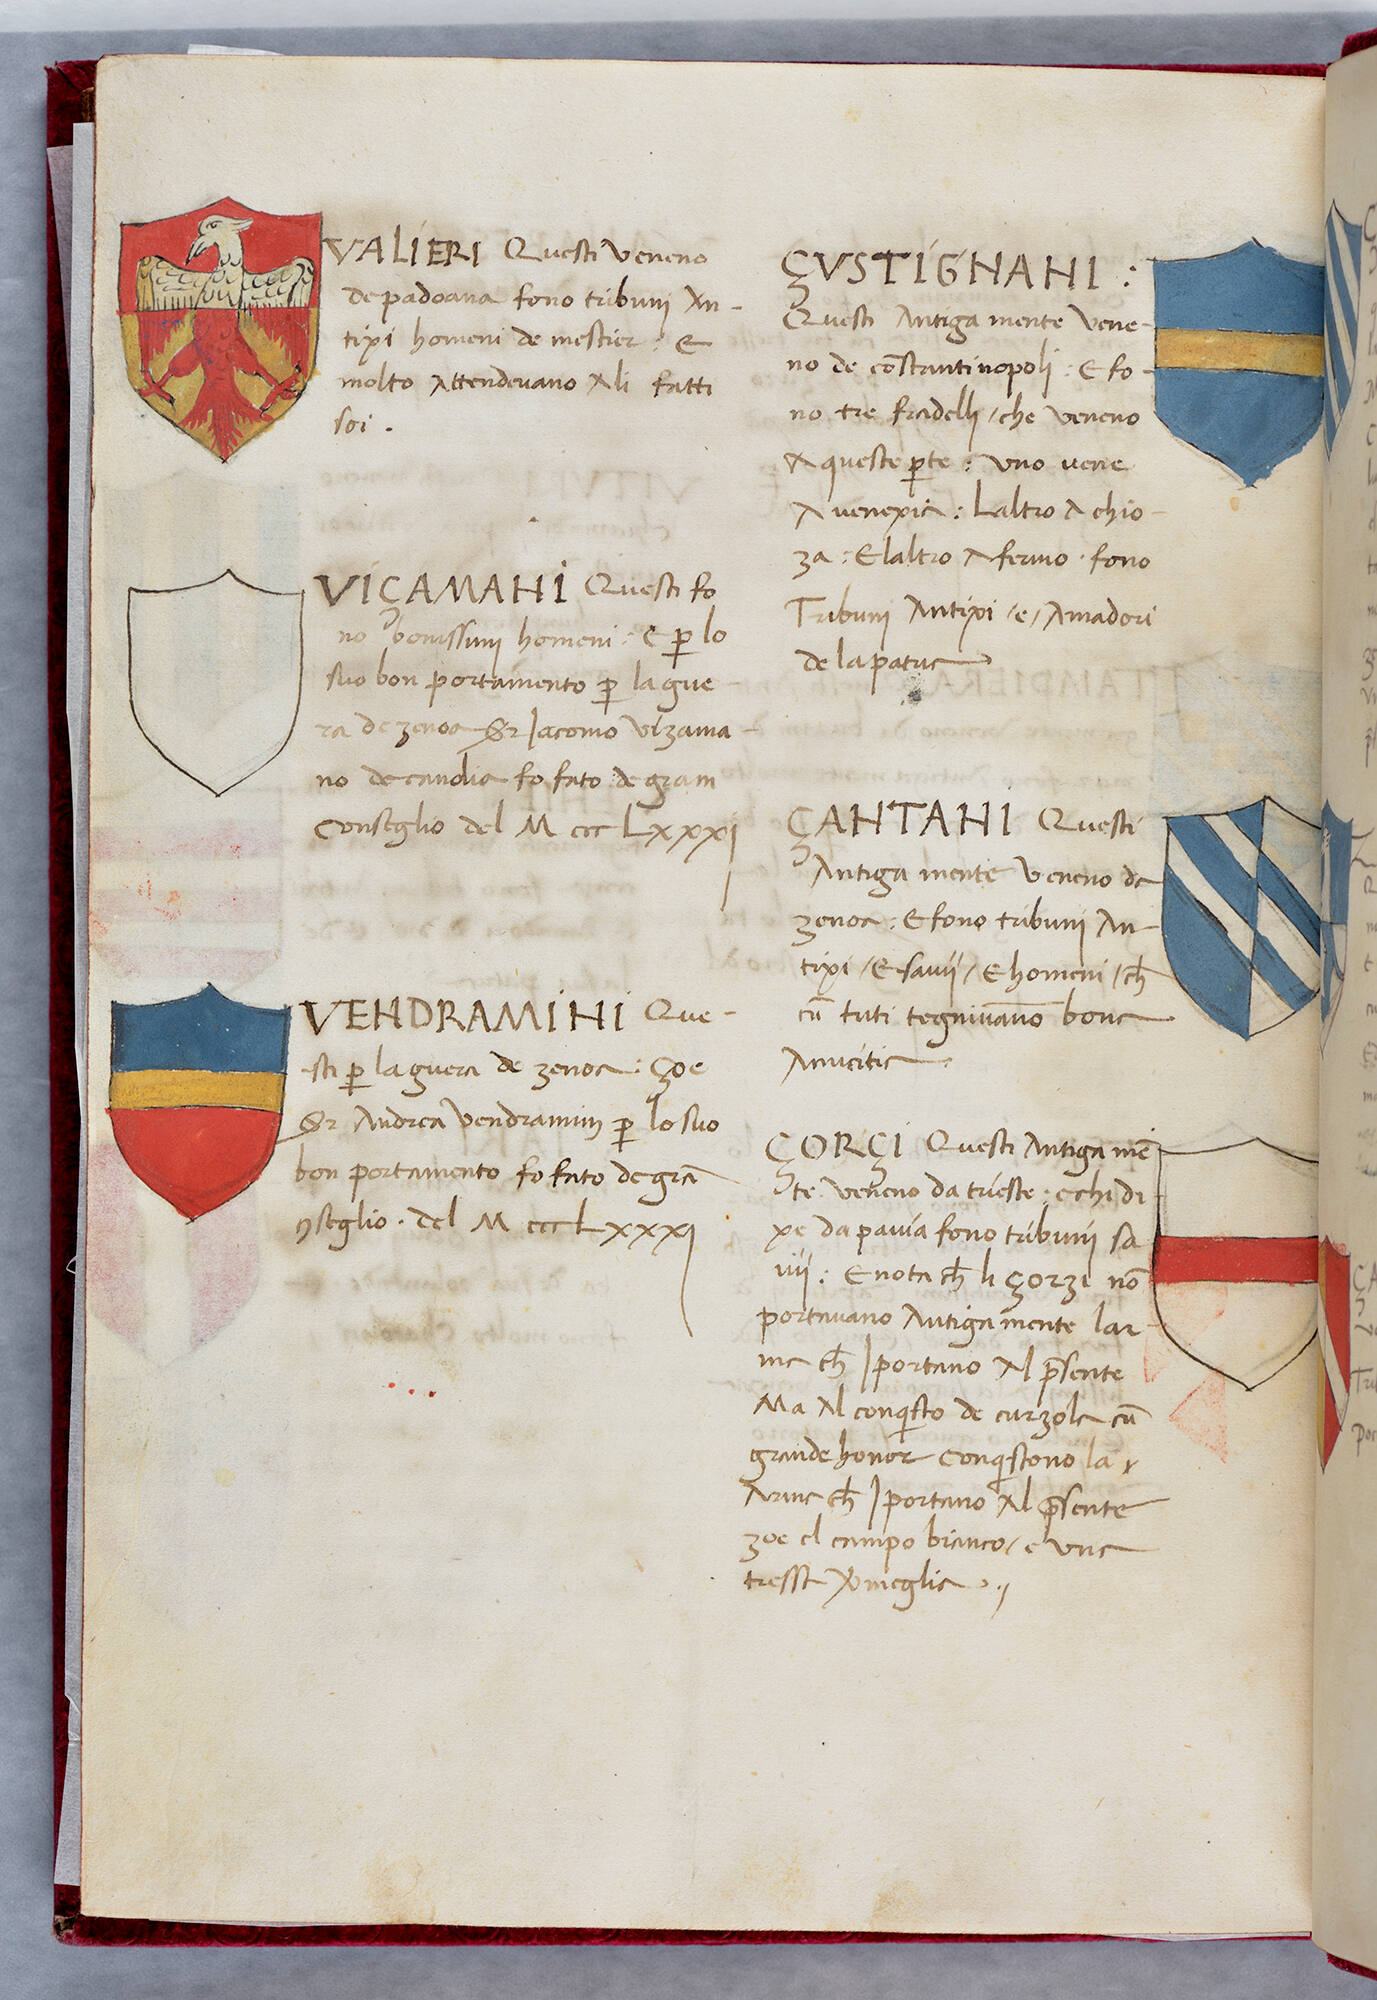 VALIERI Questi veneno
de padoana fono tribuni An-
tixi homeni de mestier: E
molto Attendevano Ali fatti
soi.
VIÇAMANI Questi fo
no bonissimi homeni: E p̱ lo
suo bon portamento p̱ la gue
ra de zenoa Sr Jacomo Vizama-
no de candia fo fato de gram
Conseglio del M ccc Lxxxj
VENDRAMINI Que-
sti p̱ la guera de zenoa: Çoe
Sr Andrea Vendramin p̱ lo suo
bon portamento fo fato de grā
ꝯseglio. del M ccc Lxxxj
ÇUSTIGNANI:
Questi Antiga mente Vene-
no de cōstantinopoli: E fo-
no tre fradelli/che veneno
A queste p̱te: Uno vene
A venexia: Laltro A chio-
za: Elaltro A fermo. fono
Tribuni Antixi/e/Amadori
de la patria
ÇANTANI Questi
Antiga mente Veneno da
zenoa: E fono tribuni An-
tixi/E savii/E homeni/ch̄
cū tuti tegnivano bona
Amicitia
ÇORÇI Questi Antiga mē
te Veneno da trieste: e chi di-
xe da pavia fono tribuni sa
vii: E nota ch̄ li Çorzi nō
portavano Antiga mente lar-
ma ch̄ I portano Al p̄sente
Ma Al conq̄sto de curzola cū
grande honor Conq̄stono la
Arma ch̄ I portano Al p̄sente
zoe el campo bianco/e una
tressa v̄meglia.